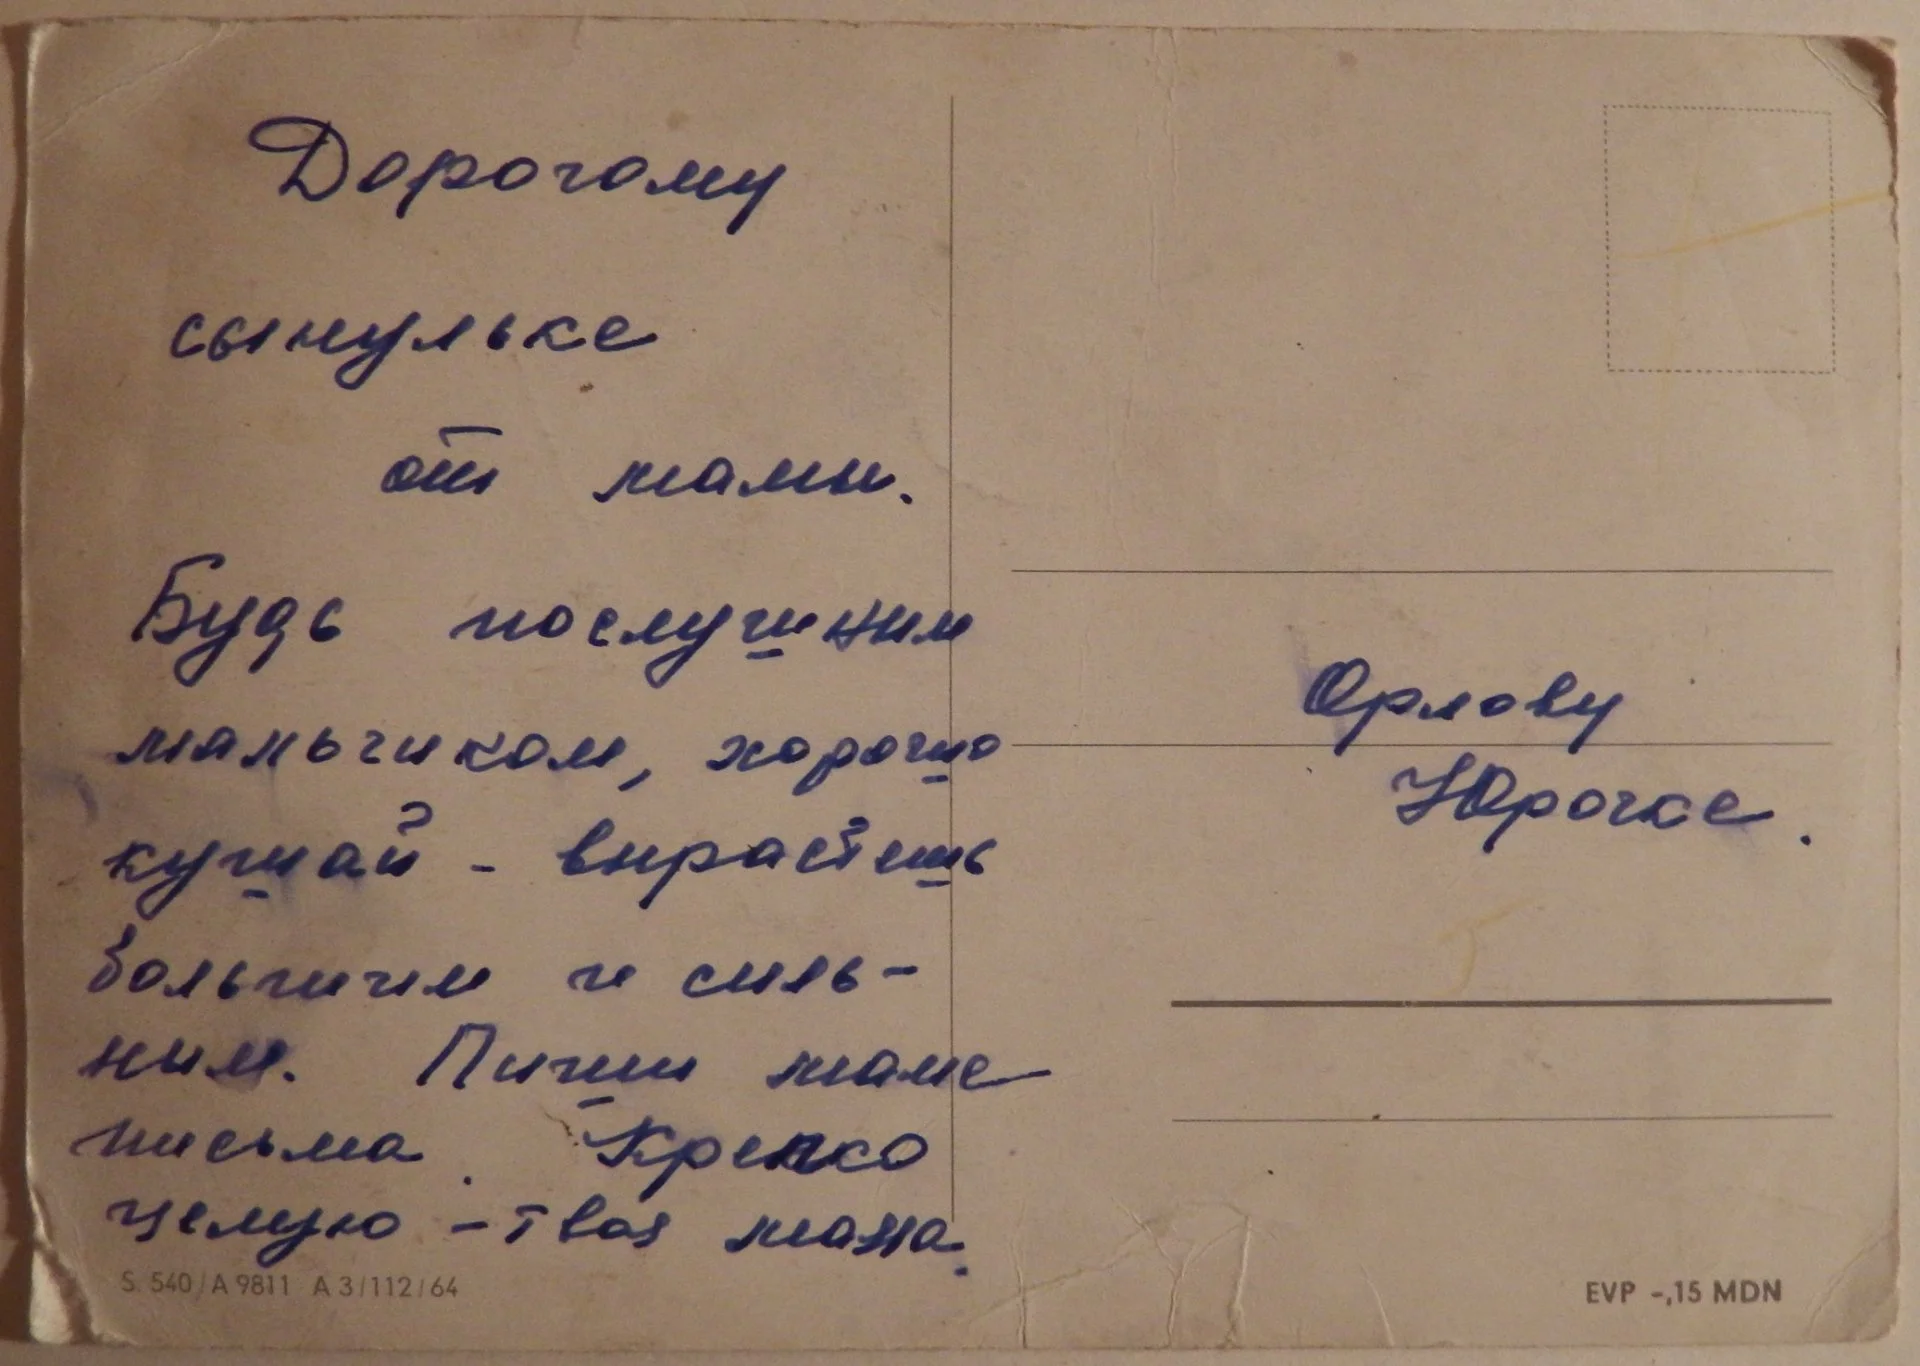 Дорогому
сынульке
от мамы.
Будь послушным
мальчиком, хорошо
кушай - вырастешь
большим и силь-
ным. Пиши маме
письма. Крепко
целую - твоя мама.
S. 540/A 9811 A 3/112/64
Орлову
Юрочке.
EVP -,15 MDN